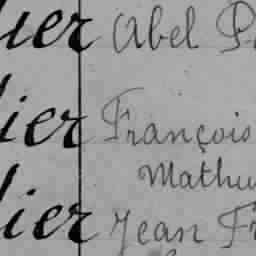 ier Abel P
ier François
Mathu
ier Jean Fr